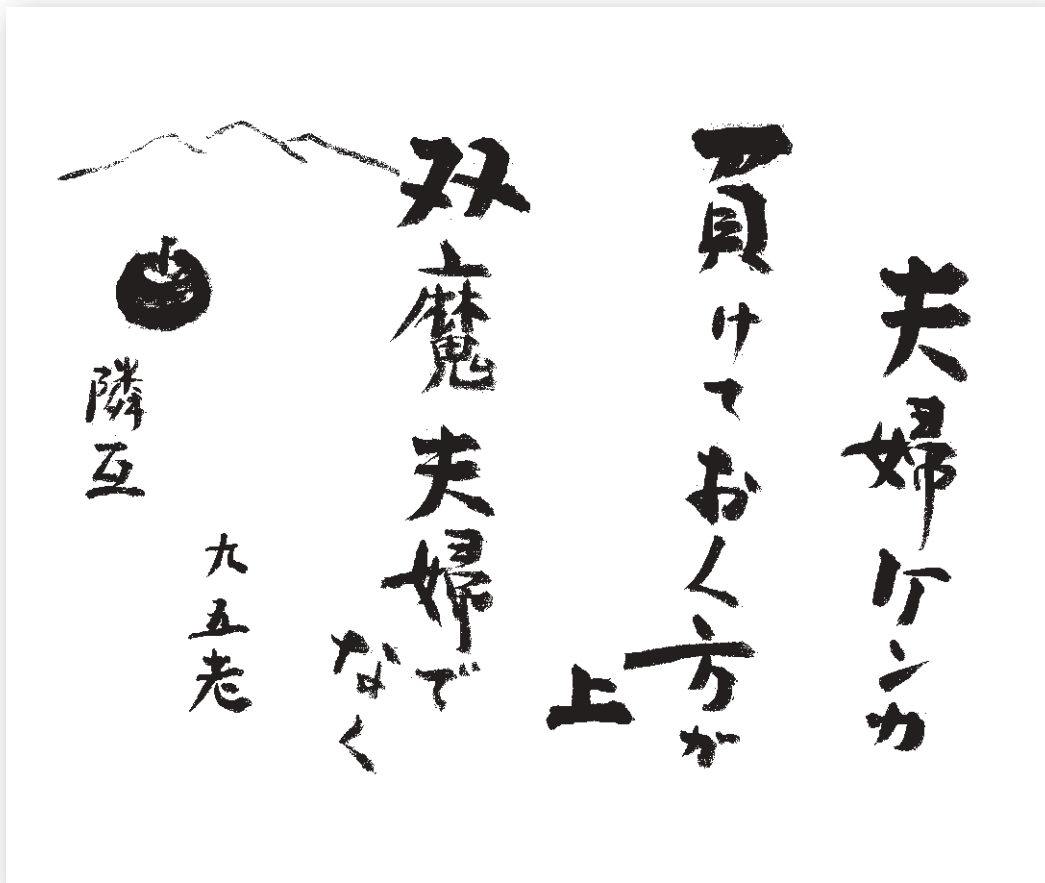 夫婦ゲンカ
負けておく方が
上
双魔夫婦で
なく
隣互
九五老